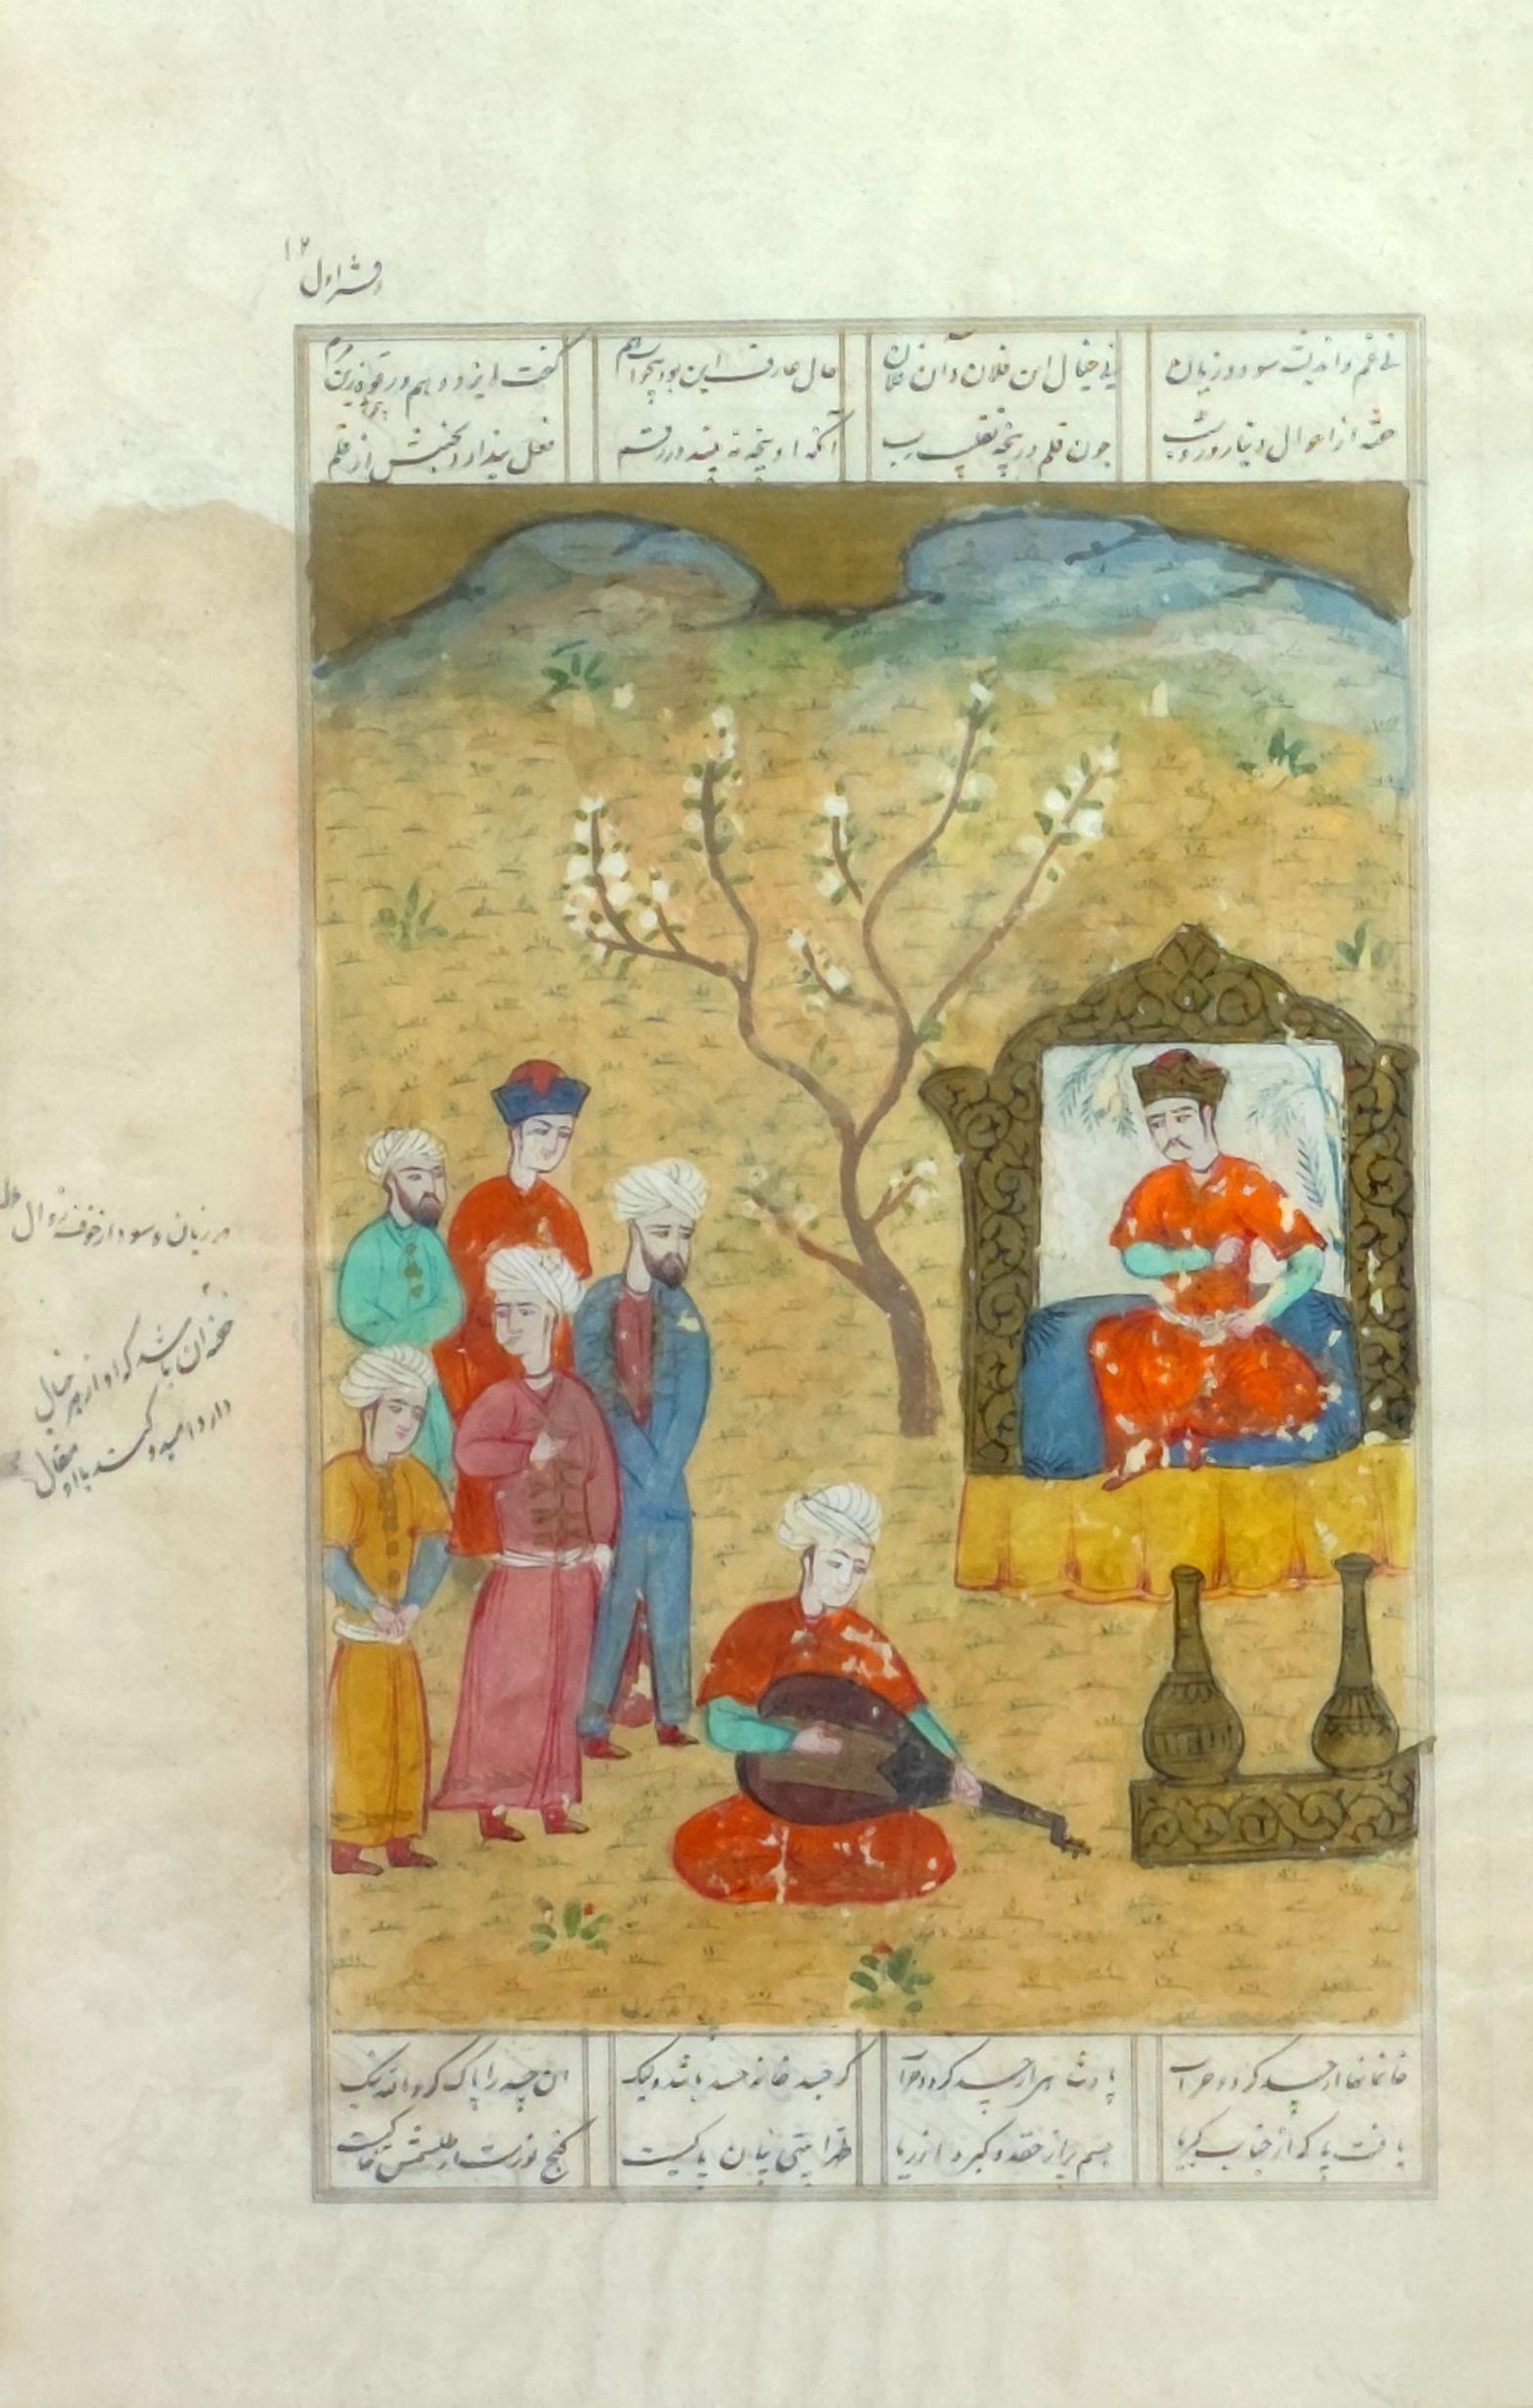 ۱۲
دفتر اول
نی غم و اندیشه سود و زیان نی خیال این فلان و آن فلان حال عارف این بود بیخواب هم گفت ایزد هم رقود زین مرم
خفته از احوال دنیا روز و شب چون قلم در پنجه تقلیب رب آنکه او پنجه نه بیند در رقم فعل پندارد بجنبش از قلم
وز زیان و سود از خوف زوال
خفته آن باشد که او از هر خیال
دارد امید و کند با او مقال
خانمانها از حسد گردد خراب از حسد گردد گر جسد خانه حسد باشد ولیک این جسد را پاک کرد الله نیک
یافت پاکی از جناب کبریا جسم پر از حقد و کبر و از ریا طهرا بیتی بیان پاکیست گنج نورست ار طلسمش خاکیست